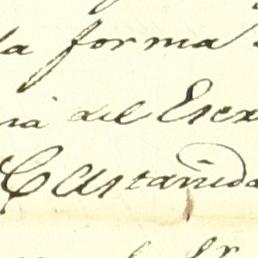 la forma
na del Escr
Castañeda